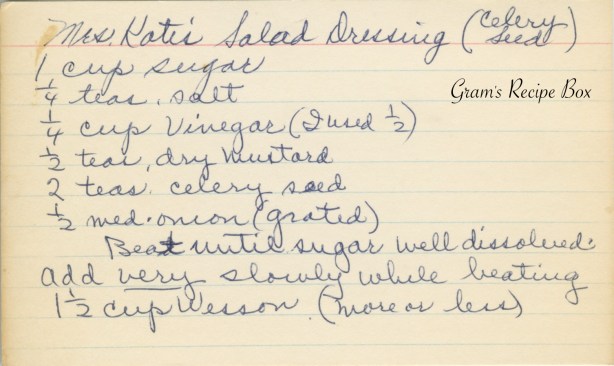 Mrs. Kate's Salad Dressing (celery seed)
1 cup sugar
1/4 teas. salt
Gram's Recipe Box
1/4 cup Vinegar (I used 1/2)
1/2 teas. dry mustard
2 teas. celery seed
1/2 med. onion (grated)
Beat until sugar well dissolved.
add very slowly while beating
1 1/2 cup Wesson. (more or less)